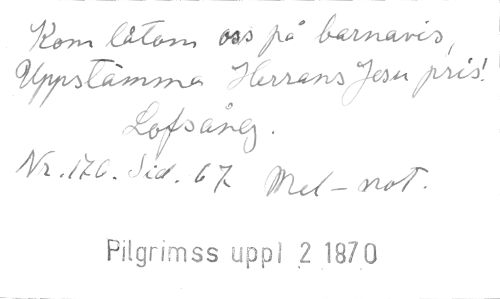 Kom låtom oss på barnavis,
Uppstämma Herrans Jesu pris!
Lofsång.
Nr. 176. Sid. 67. Mel-not.
Pilgrimss uppl 2 1870